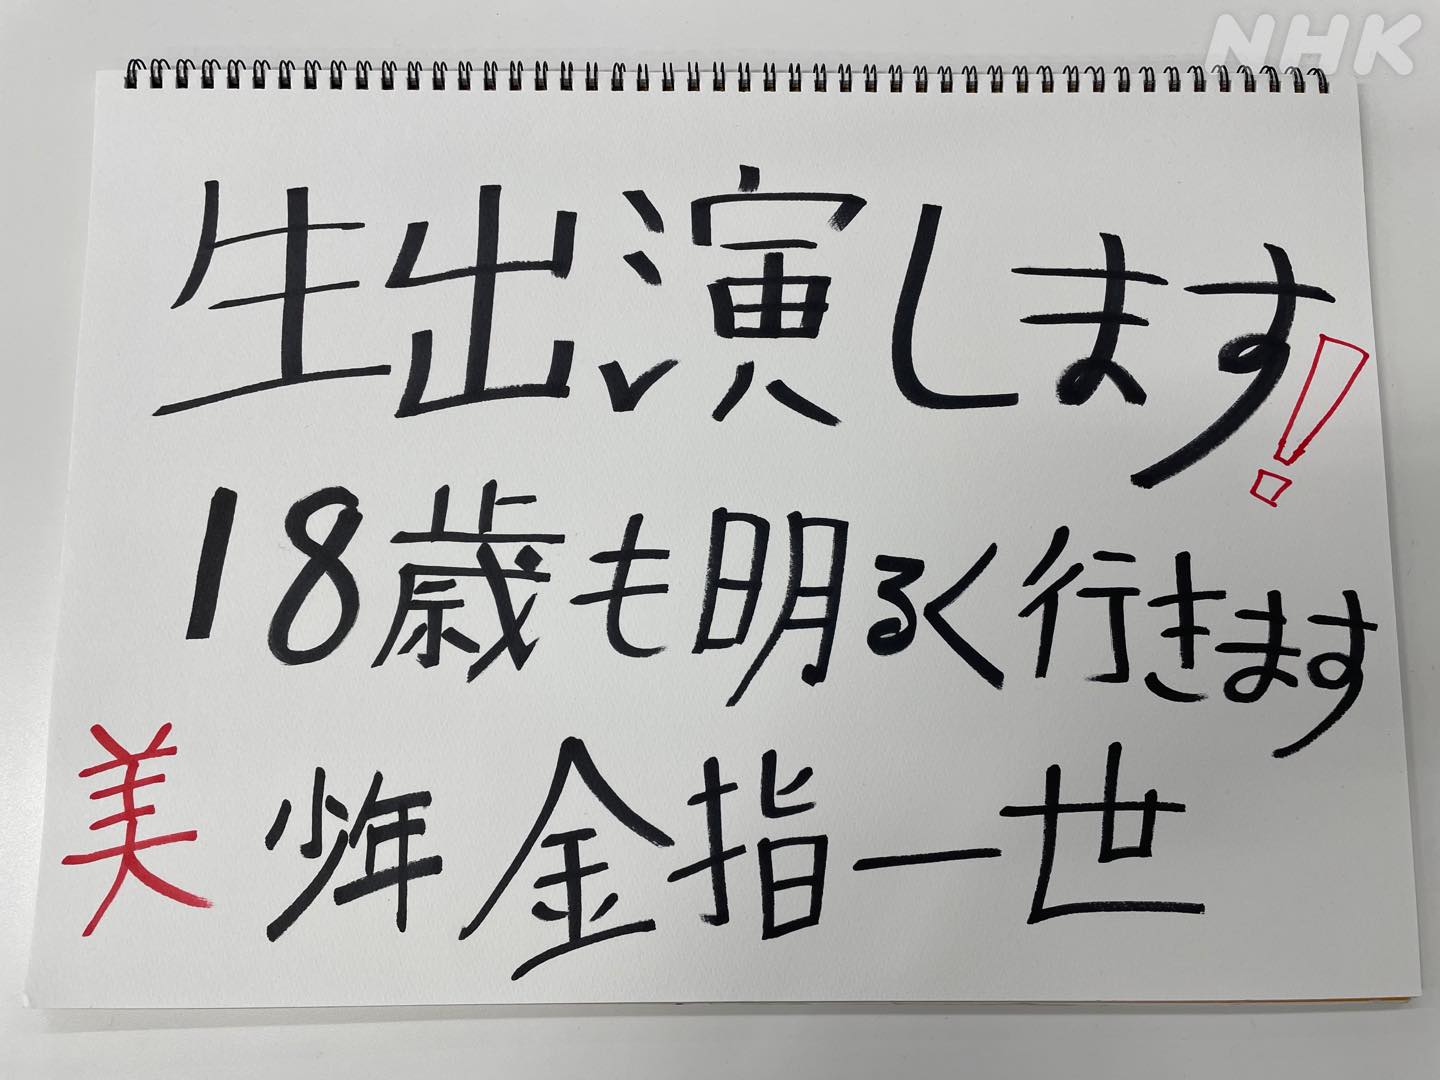 NHK
生出演します!
18歳も明るく行きます
美 少年 金指一世